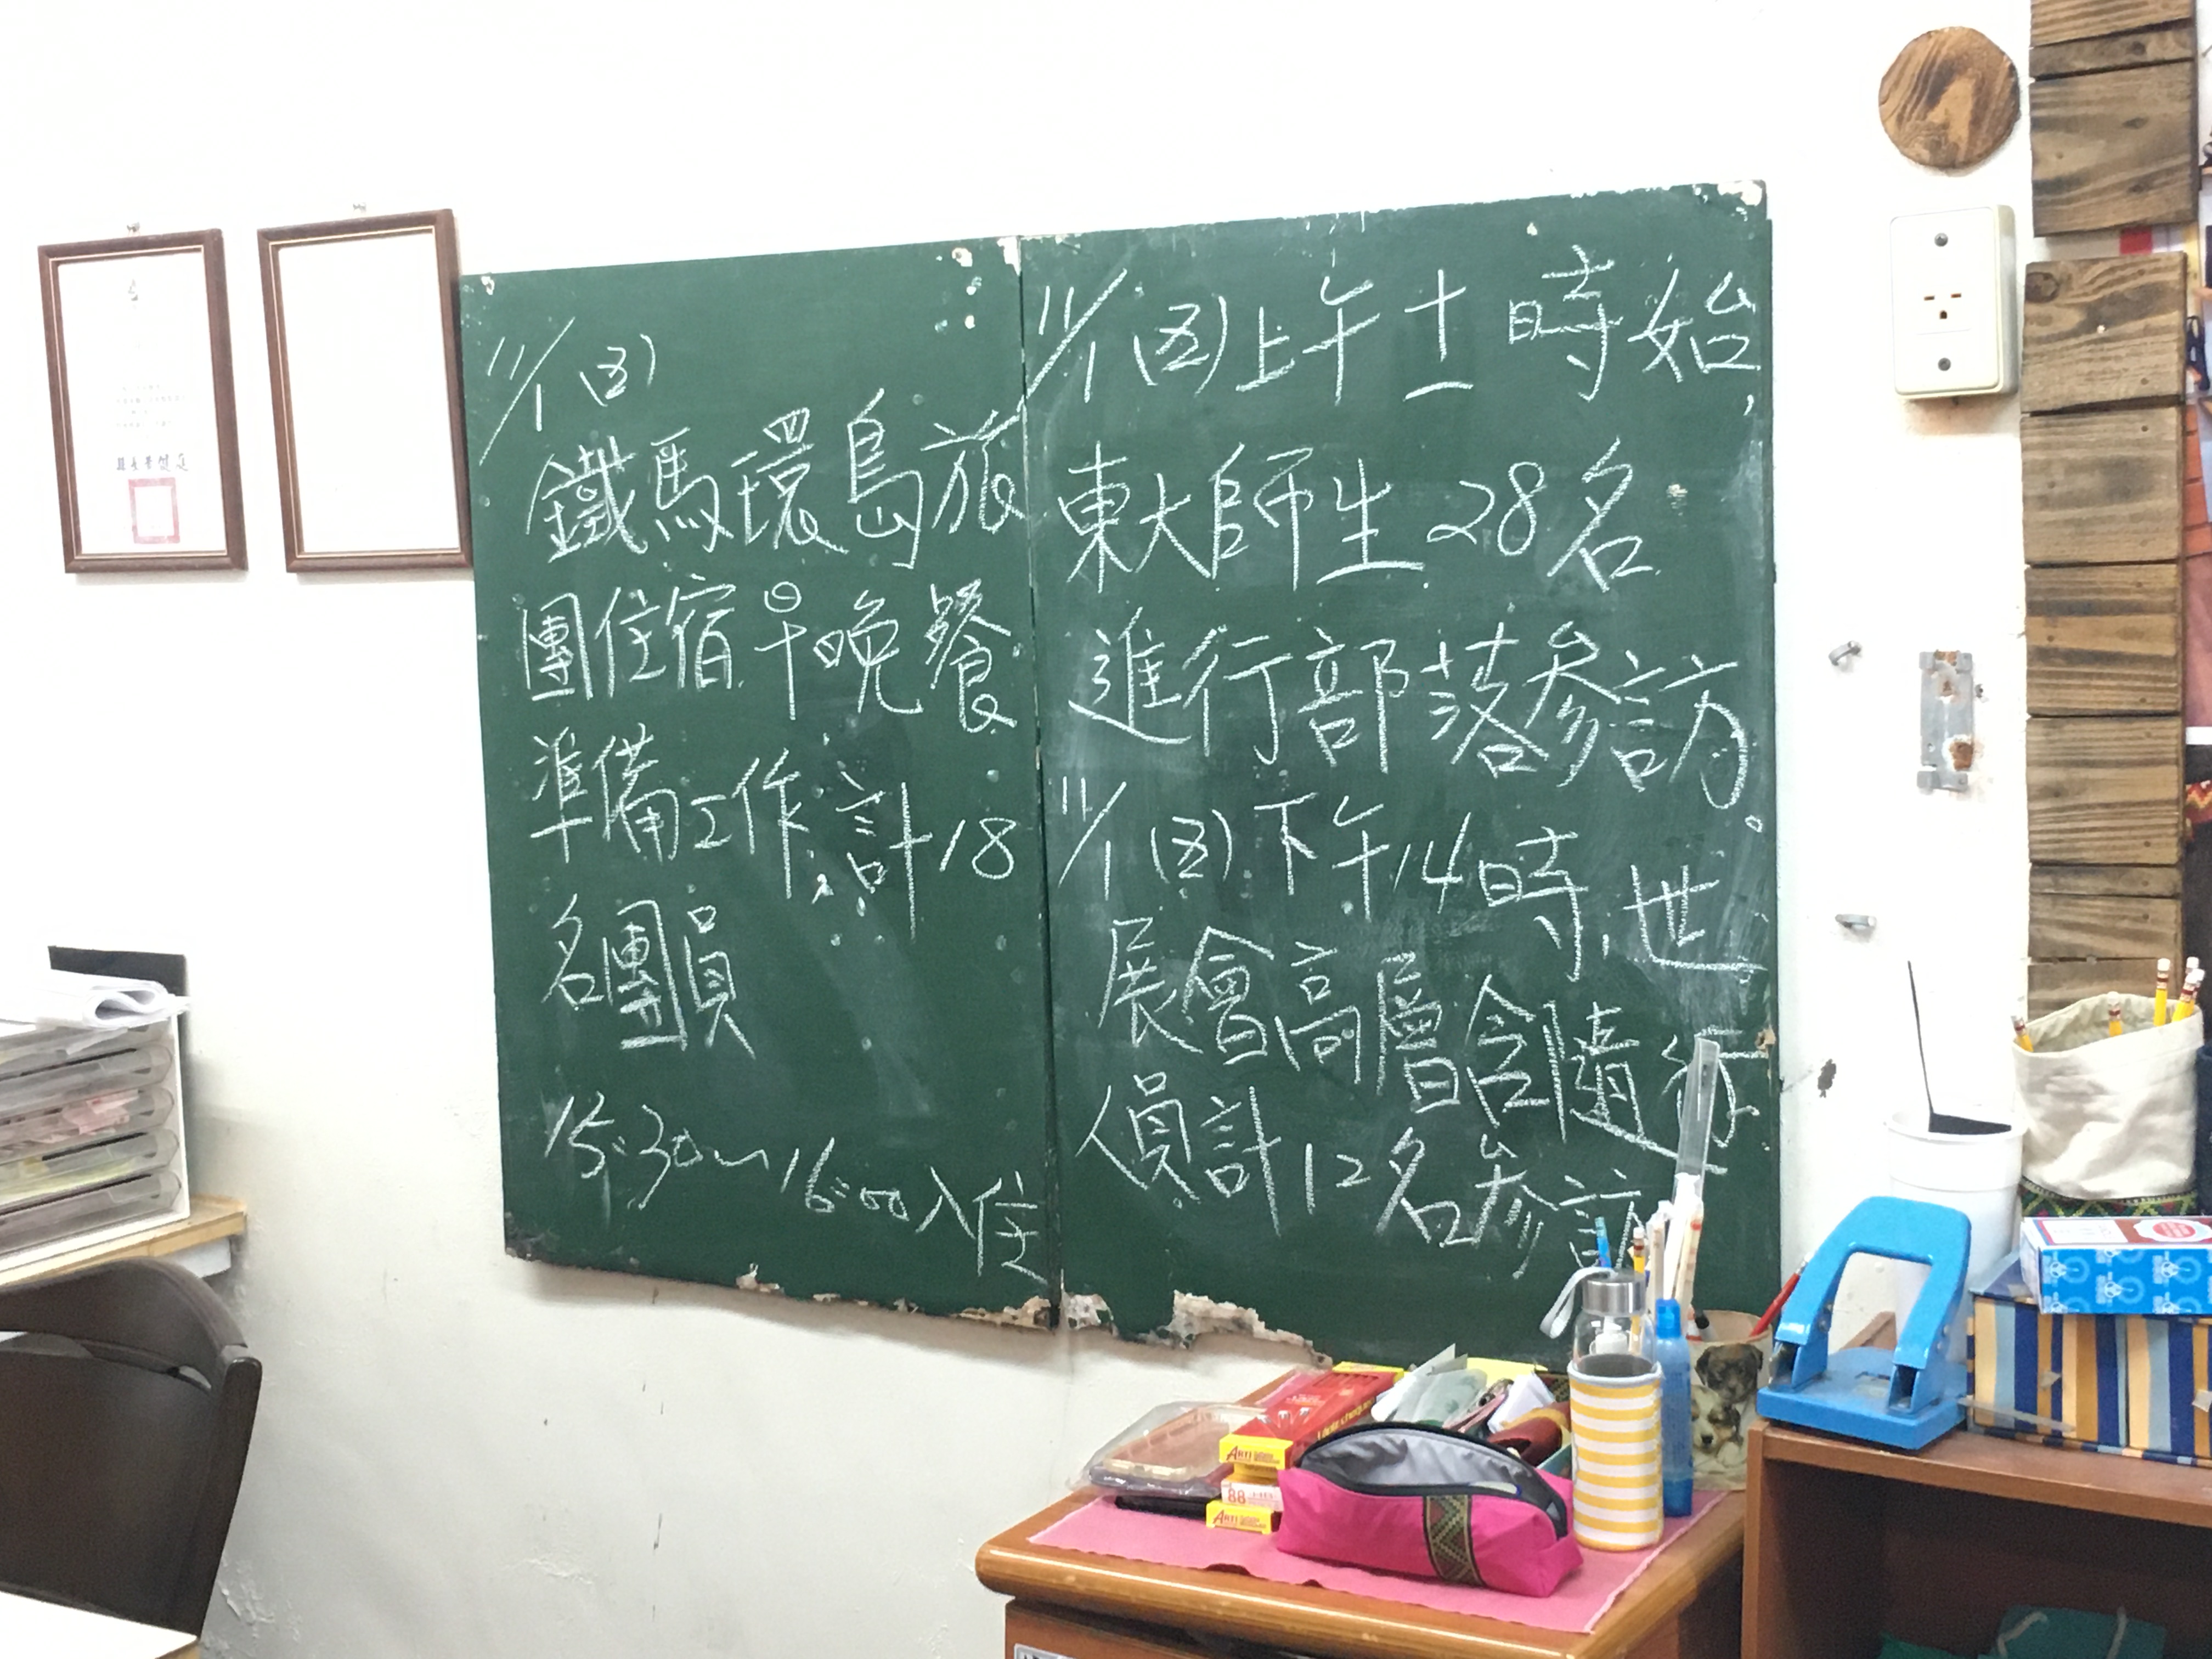 11/1(五)
鐵馬環島旅
團住宿早晚餐
準備工作,計18
名團員
15:30~16:00入住
11/1(五)上午十一時始,
東大師生28名
進行部落參訪。
11/1(五)下午14時,世
展會高層含隨行
人員計12名參訪
ARTI
88
ARTI